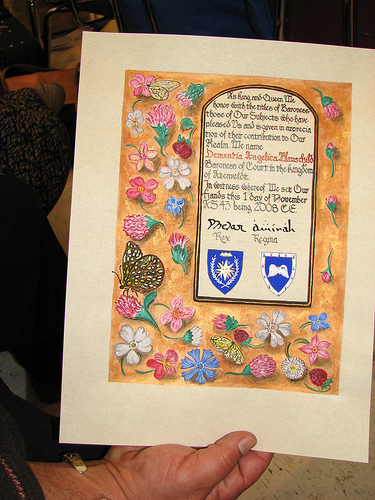 As King and Queen We
honor with the titles of Baroness
those of Our Subjects who have
pleased Us and is given in apprecia
tion of their contribution to Our
Realm. We name
Dementia Angelica
Baroness of Court in the Kingdom
of Atenveldt.
In witness whereof We set Our
Hands this 1 day of November
AS 43 being 2008 C.E.
Rex Regina